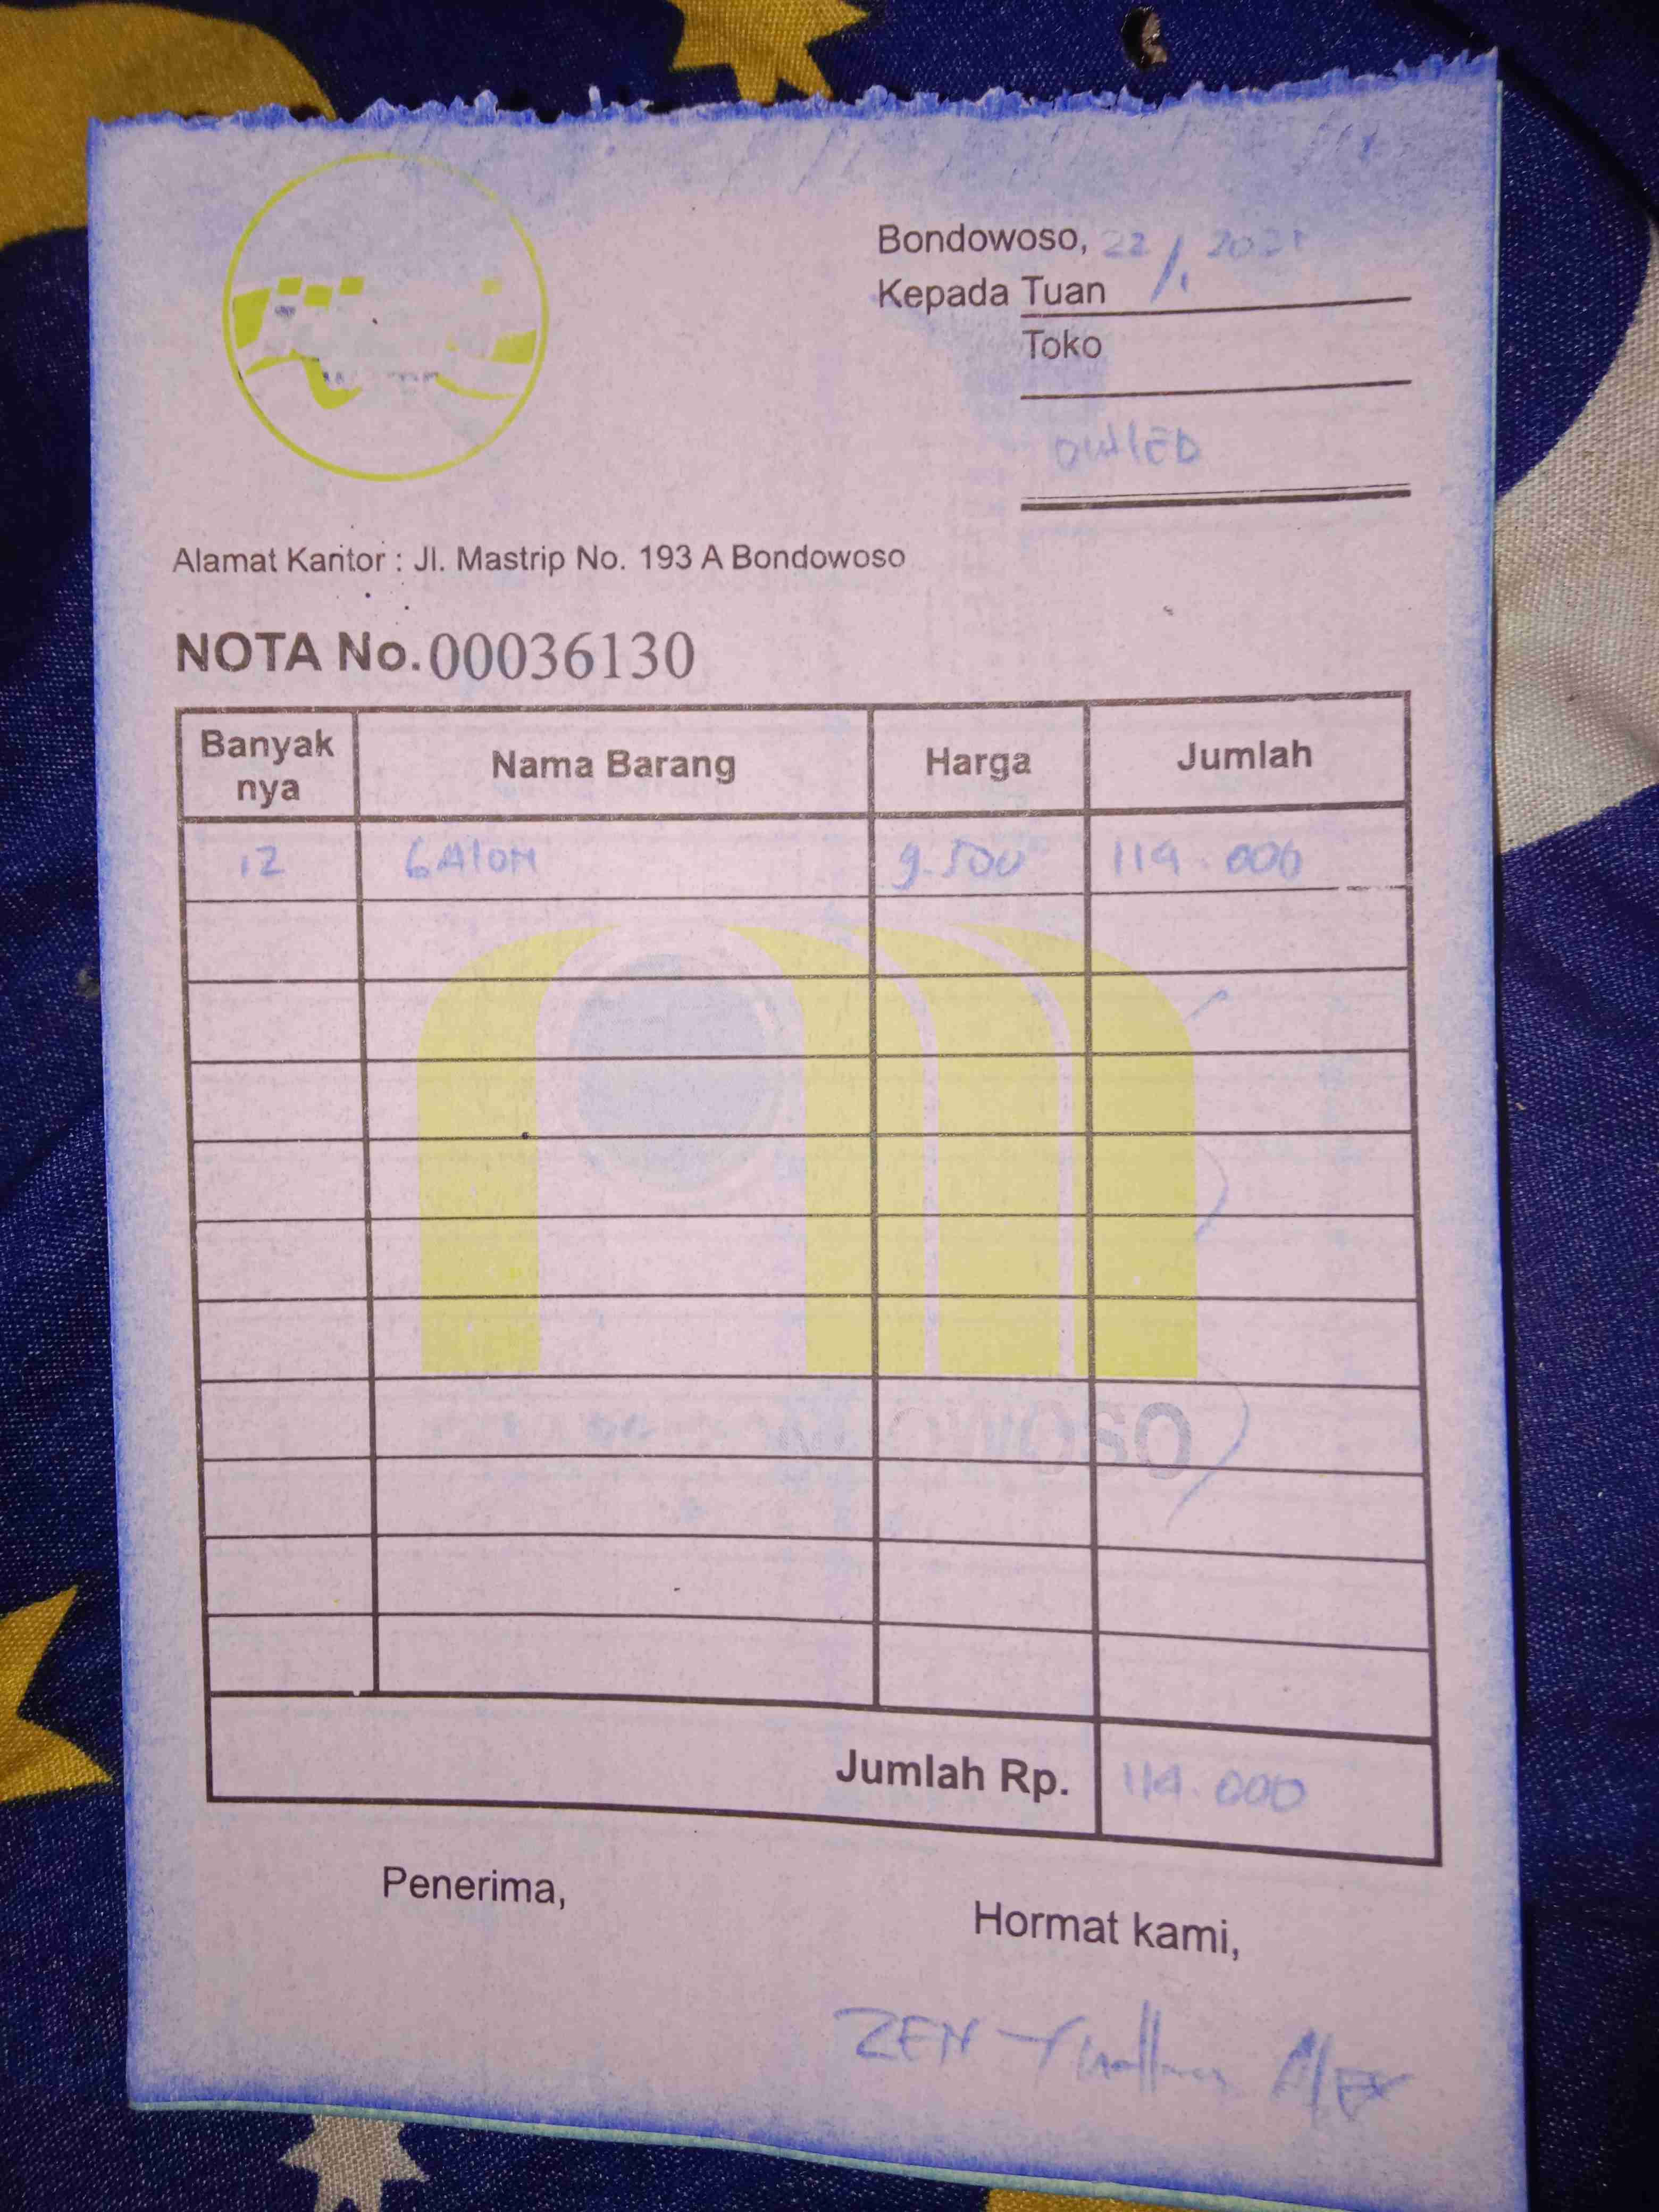 Bondowoso, 22/1 2021
Kepada Tuan
Toko
Alamat Kantor : Jl. Mastrip No. 193 A Bondowoso
NOTA No. 00036130
Banyak nya Nama Barang Harga Jumlah
12 GAlON 9.500 114.000
OWOSO
Jumlah Rp. 114.000
Penerima,
Hormat kami,
ZEN